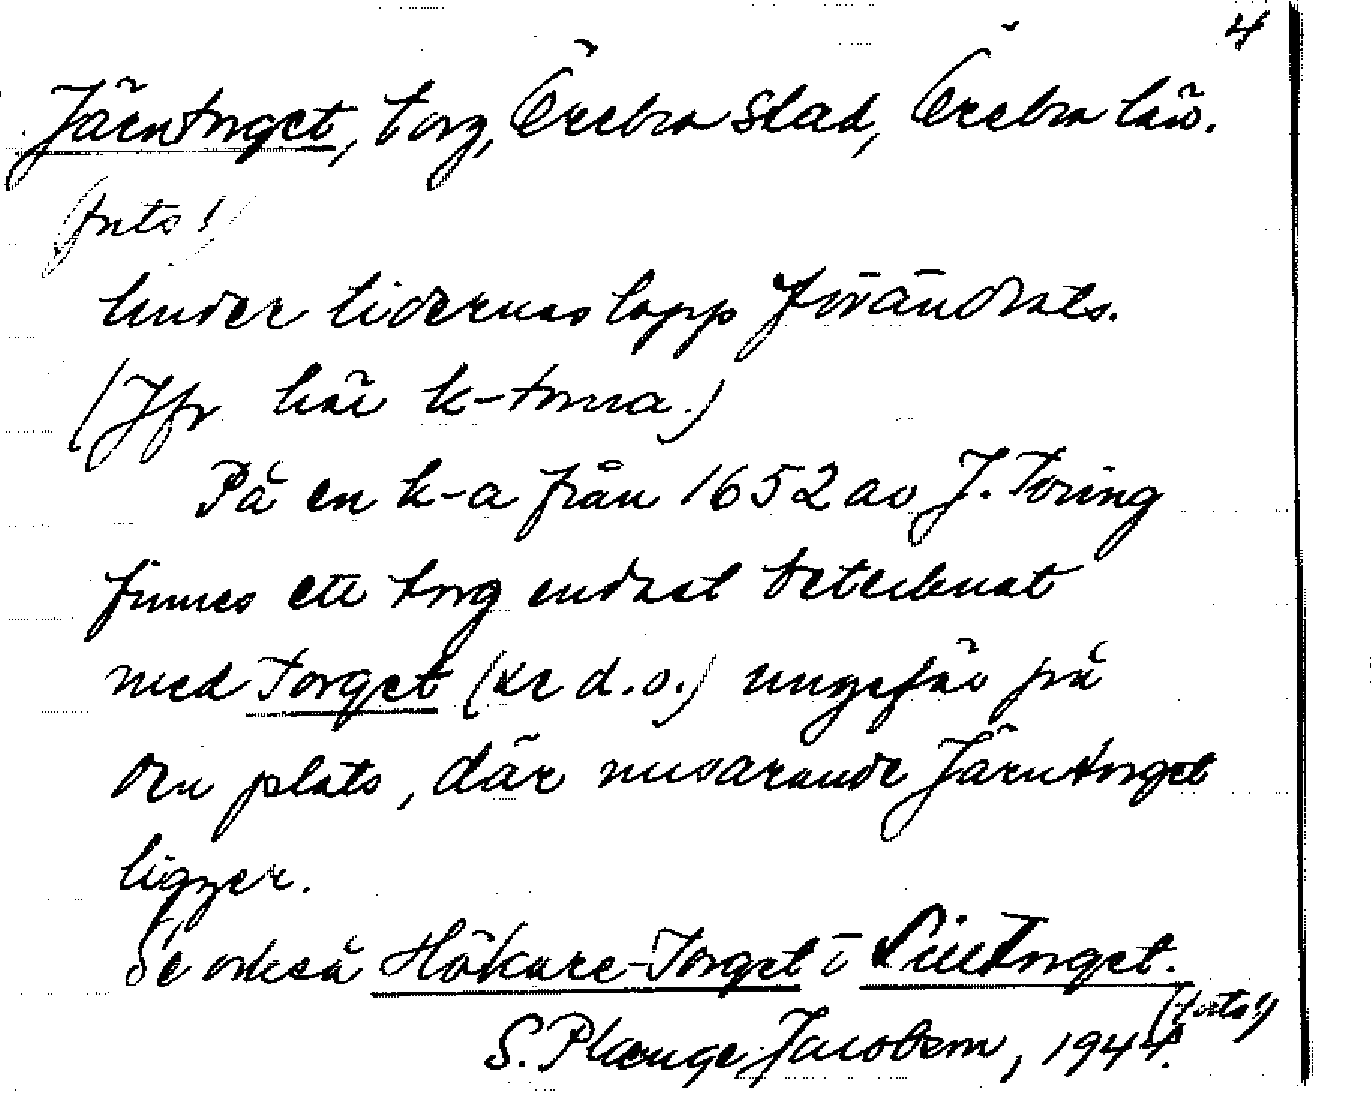 4
Järntorget, torg, Örebro stad, Örebro län.
(forts!)
under tidernas lopp förändrats.
(Jfr här k-torna.)
På en k-a från 1652 av J. Toring
finnes ett torg endast betecknat
med Torget (se d.o.) ungefär på
den plats, där nuvarande Järntorget
ligger.
Se också Hökare-Torget o Lilltorget.
(forts!)
S. Plænge Jacobson, 1944.